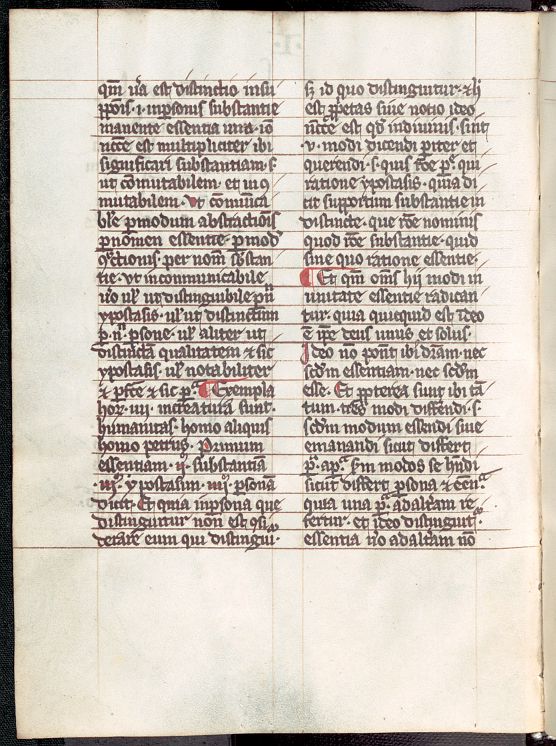 qm̄ v̄a est distinctio in su
p̄p̄oīs · i · in p̄sonis substantie
manente essentia una · iō
nc̄c̄e est multipliciter ibi
significari substantiam · s̄
ut cōmutabilem · et in 9
mutabilem · Vt cōmūica
ble p̄ modum abstractiōis
p̄ nomen essentie · p̄ mod̄
ꝯc̄tionis per nom̄ sb̄stan
tie · vt incommunicabile
ut distinguibile
ypostasis · ul̓ ut distinctum
p̄sone · ul̓ aliter ut
distincta qualitatem ⁊ sic
ypostasis · ul̓ notabiliter
⁊ p̄fc̄e ⁊ sic p̄ᵃ Exempla
hoꝝ · iiii · in creatura sunt ·
humanitas · homo aliquis
homo petrus · Primum
essentiam · ij · substantiā
· iij · ypostasim · iiij · p̄sonā
dicit · Et quia in p̄sona que
distinguitur non est ꝯsi
derare eum qui distingui ·
s̄ id quo distinguitur · ⁊ h̄
est p̄p̄etas siue notio ideo
nc̄c̄e est qd̄ in diuinis · sint
v · modi dicendi p̄iter et
querendi · s · quis rōe p̄ᵉ · qui
ratione ypostasis · quia di
cit suppositum substantie in
distincte · que rōe nominis
quod rōe substantie · quid
sine quo ratione essentie ·
Et qm̄ om̄s hij modi in
unitate essentie radican
tur · quia quicquid est ī deo
ē ip̄e deus unus et solus ·
Ideo nō ponūt ibi dr̄iam · nec
scd̄m essentiam · nec scd̄m
esse · Et p̄pterea sunt ibi tā
tum · tres modi differendi · s ·
scd̄m modum essendi siue
emanandi sicut differt
p̄ᵃ · a p̄ᵃ · s̄m modos se hn̄di
sicut differt p̄sona ⁊ cēnᵃ
quia una p̄ᵃ · ad alt̄am re
fertur · et ideo distinguit᷑ ·
essentia nō ad alt̄am nō